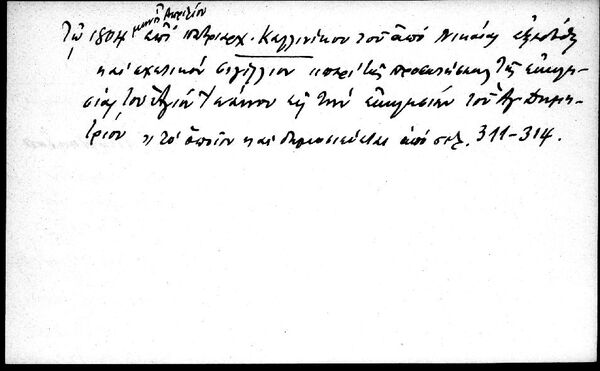 μηνὶ Ἀπριλίου
Τῷ 1804 ἐπὶ πατριαρχ. Καλλινίκου τοῦ ἀπὸ Νικαίας ἐξεδόθη
καὶ σχετικὸν σιγίλλιον "περὶ τῆς προσκυρώσεως τῆς ἐκκλη-
σίας τοῦ Ἁγίου Ἰωάννου εἰς τὴν ἐκκλησίαν τοῦ Ἁγ. Δημη-
τρίου" τὸ ὁποῖον καὶ δημοσιεύεται ἀπὸ σελ. 311-314.